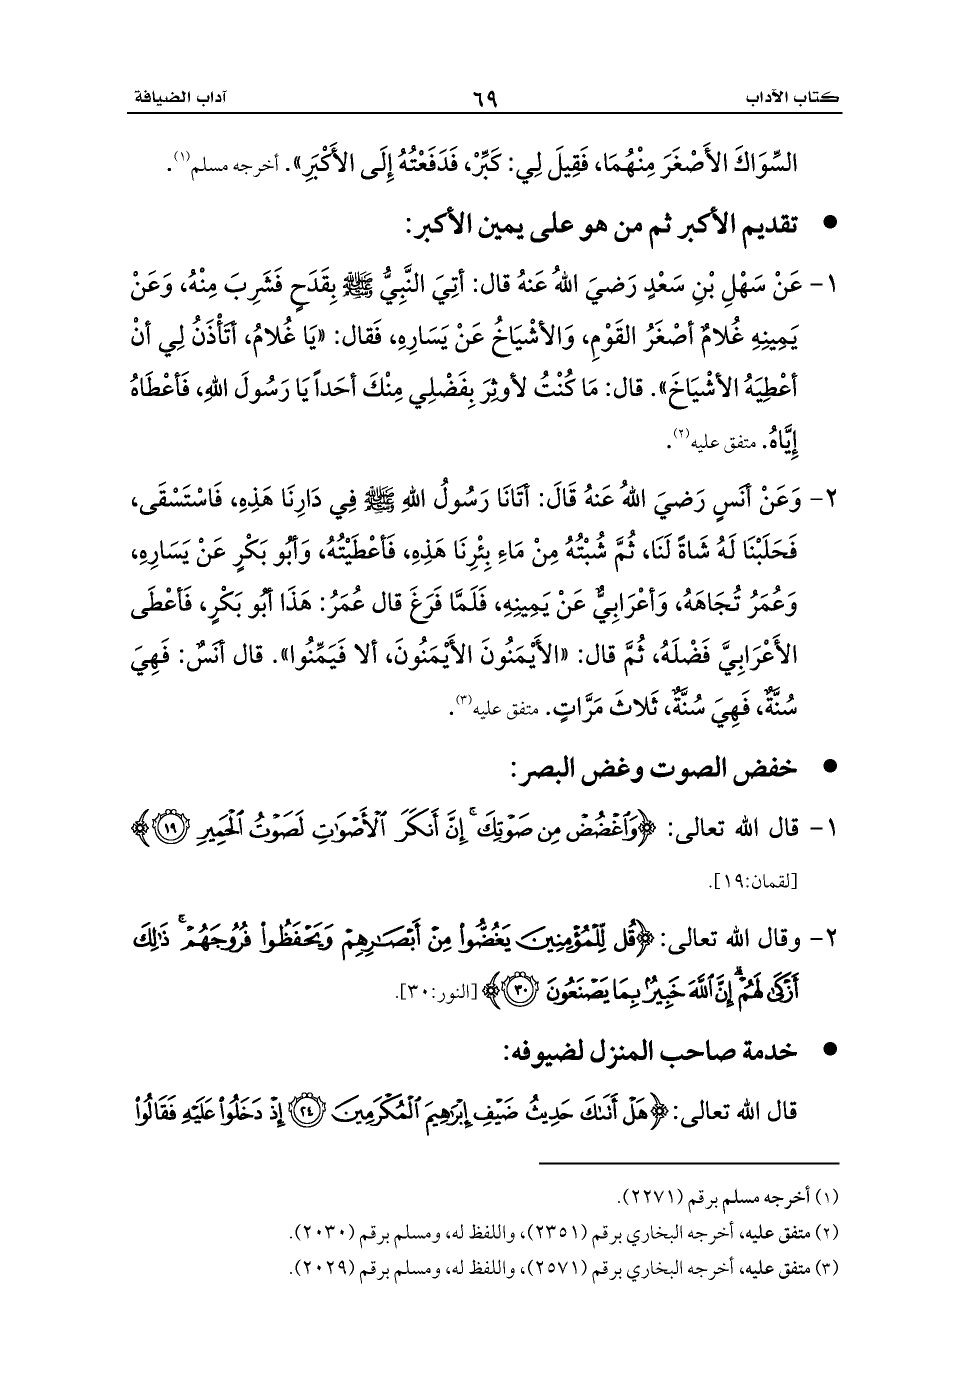 كتاب الآداب ٦٩ آداب الضيافة
السِّوَاكَ الأَصْغَرَ مِنْهُمَا، فَقِيلَ لِي: كَبِّرْ، فَدَفَعْتُهُ إِلَى الأَكْبَرِ». أخرجه مسلم(١).
● تقديم الأكبر ثم من هو على يمين الأكبر:
١- عَنْ سَهْلِ بْنِ سَعْدٍ رَضيَ اللهُ عَنهُ قال: أتِيَ النَّبِيُّ ﷺ بِقَدَحٍ فَشَرِبَ مِنْهُ، وَعَنْ
يَمِينِهِ غُلامٌ أصْغَرُ القَوْمِ، وَالأشْيَاخُ عَنْ يَسَارِهِ، فَقال: «يَا غُلامُ، أتَأْذَنُ لِي أنْ
أعْطِيَهُ الأشْيَاخَ». قال: مَا كُنْتُ لأوثِرَ بِفَضْلِي مِنْكَ أحَداً يَا رَسُولَ اللهِ، فَأعْطَاهُ
إِيَّاهُ. متفق عليه(٢).
٢- وَعَنْ أنَسٍ رَضيَ اللهُ عَنهُ قَالَ: أتَانَا رَسُولُ اللهِ ﷺ فِي دَارِنَا هَذِهِ، فَاسْتَسْقَى،
فَحَلَبْنَا لَهُ شَاةً لَنَا، ثُمَّ شُبْتُهُ مِنْ مَاءِ بِئْرِنَا هَذِهِ، فَأعْطَيْتُهُ، وَأبُو بَكْرٍ عَنْ يَسَارِهِ،
وَعُمَرُ تُجَاهَهُ، وَأعْرَابِيٌّ عَنْ يَمِينِهِ، فَلَمَّا فَرَغَ قال عُمَرُ: هَذَا أبُو بَكْرٍ، فَأعْطَى
الأَعْرَابِيَّ فَضْلَهُ، ثُمَّ قال: «الأَيْمَنُونَ الأَيْمَنُونَ، ألا فَيَمِّنُوا». قال أنَسٌ: فَهِيَ
سُنَّةٌ، فَهِيَ سُنَّةٌ، ثَلاثَ مَرَّاتٍ. متفق عليه(٣).
● خفض الصوت وغض البصر:
١- قال الله تعالى: ﴿وَٱغْضُضْ مِن صَوْتِكَ ۚ إِنَّ أَنكَرَ ٱلْأَصْوَٰتِ لَصَوْتُ ٱلْحَمِيرِ ١٩﴾
[لقمان:١٩].
٢- وقال الله تعالى: ﴿قُل لِّلْمُؤْمِنِينَ يَغُضُّوا۟ مِنْ أَبْصَـٰرِهِمْ وَيَحْفَظُوا۟ فُرُوجَهُمْ ۚ ذَٰلِكَ
أَزْكَىٰ لَهُمْ ۗ إِنَّ ٱللَّهَ خَبِيرٌۢ بِمَا يَصْنَعُونَ ٣٠﴾ [النور:٣٠].
● خدمة صاحب المنزل لضيوفه:
قال الله تعالى: ﴿هَلْ أَتَىٰكَ حَدِيثُ ضَيْفِ إِبْرَٰهِيمَ ٱلْمُكْرَمِينَ ٢٤ إِذْ دَخَلُوا۟ عَلَيْهِ فَقَالُوا۟
(١) أخرجه مسلم برقم (٢٢٧١).
(٢) متفق عليه، أخرجه البخاري برقم (٢٣٥١)، واللفظ له، ومسلم برقم (٢٠٣٠).
(٣) متفق عليه، أخرجه البخاري برقم (٢٥٧١)، واللفظ له، ومسلم برقم (٢٠٢٩).